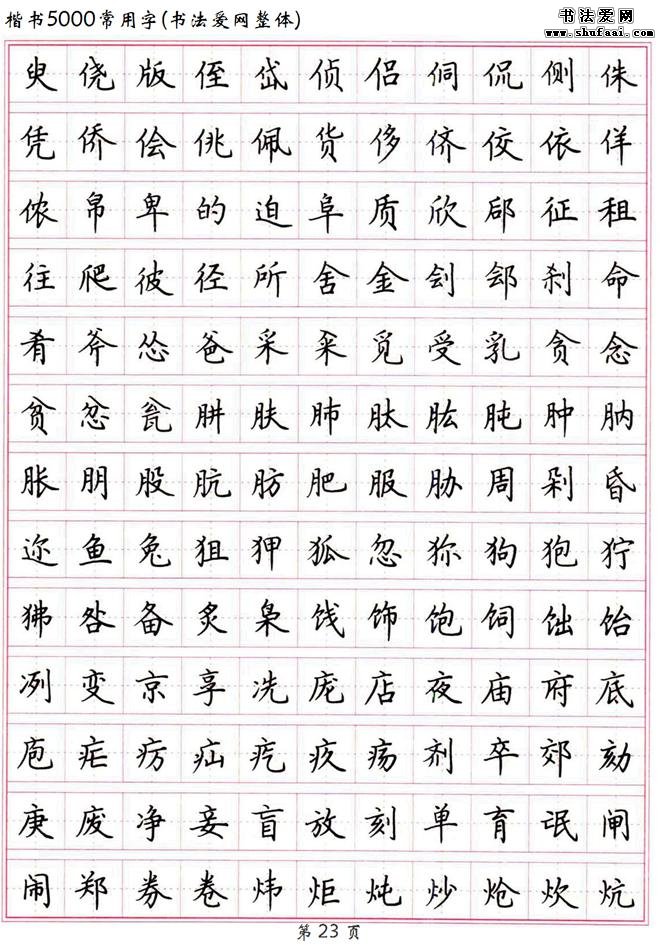 楷书5000常用字(书法爱网整体)
书法爱网
www.shufaai.com
臾侥版侄岱侦侣侗侃侧侏
凭侨侩佻佩货侈侪佼依佯
侬帛卑的迫阜质欣郈征租
往爬彼径所舍金刽郐刹命
肴斧怂爸采籴觅受乳贪念
贫忿瓮肼肤肺肽肱肫肿肭
胀朋股肮肪肥服胁周剁昏
迩鱼兔狙狎狐忽狝狗狍狞
狒咎备炙枭饯饰饱饲饳饴
冽变京享冼庞店夜庙府底
庖疟疠疝疙疚疡剂卒郊劾
庚废净妾盲放刻单育氓闸
闹郑券卷炜炬炖炒炝炊炕
第 23 页